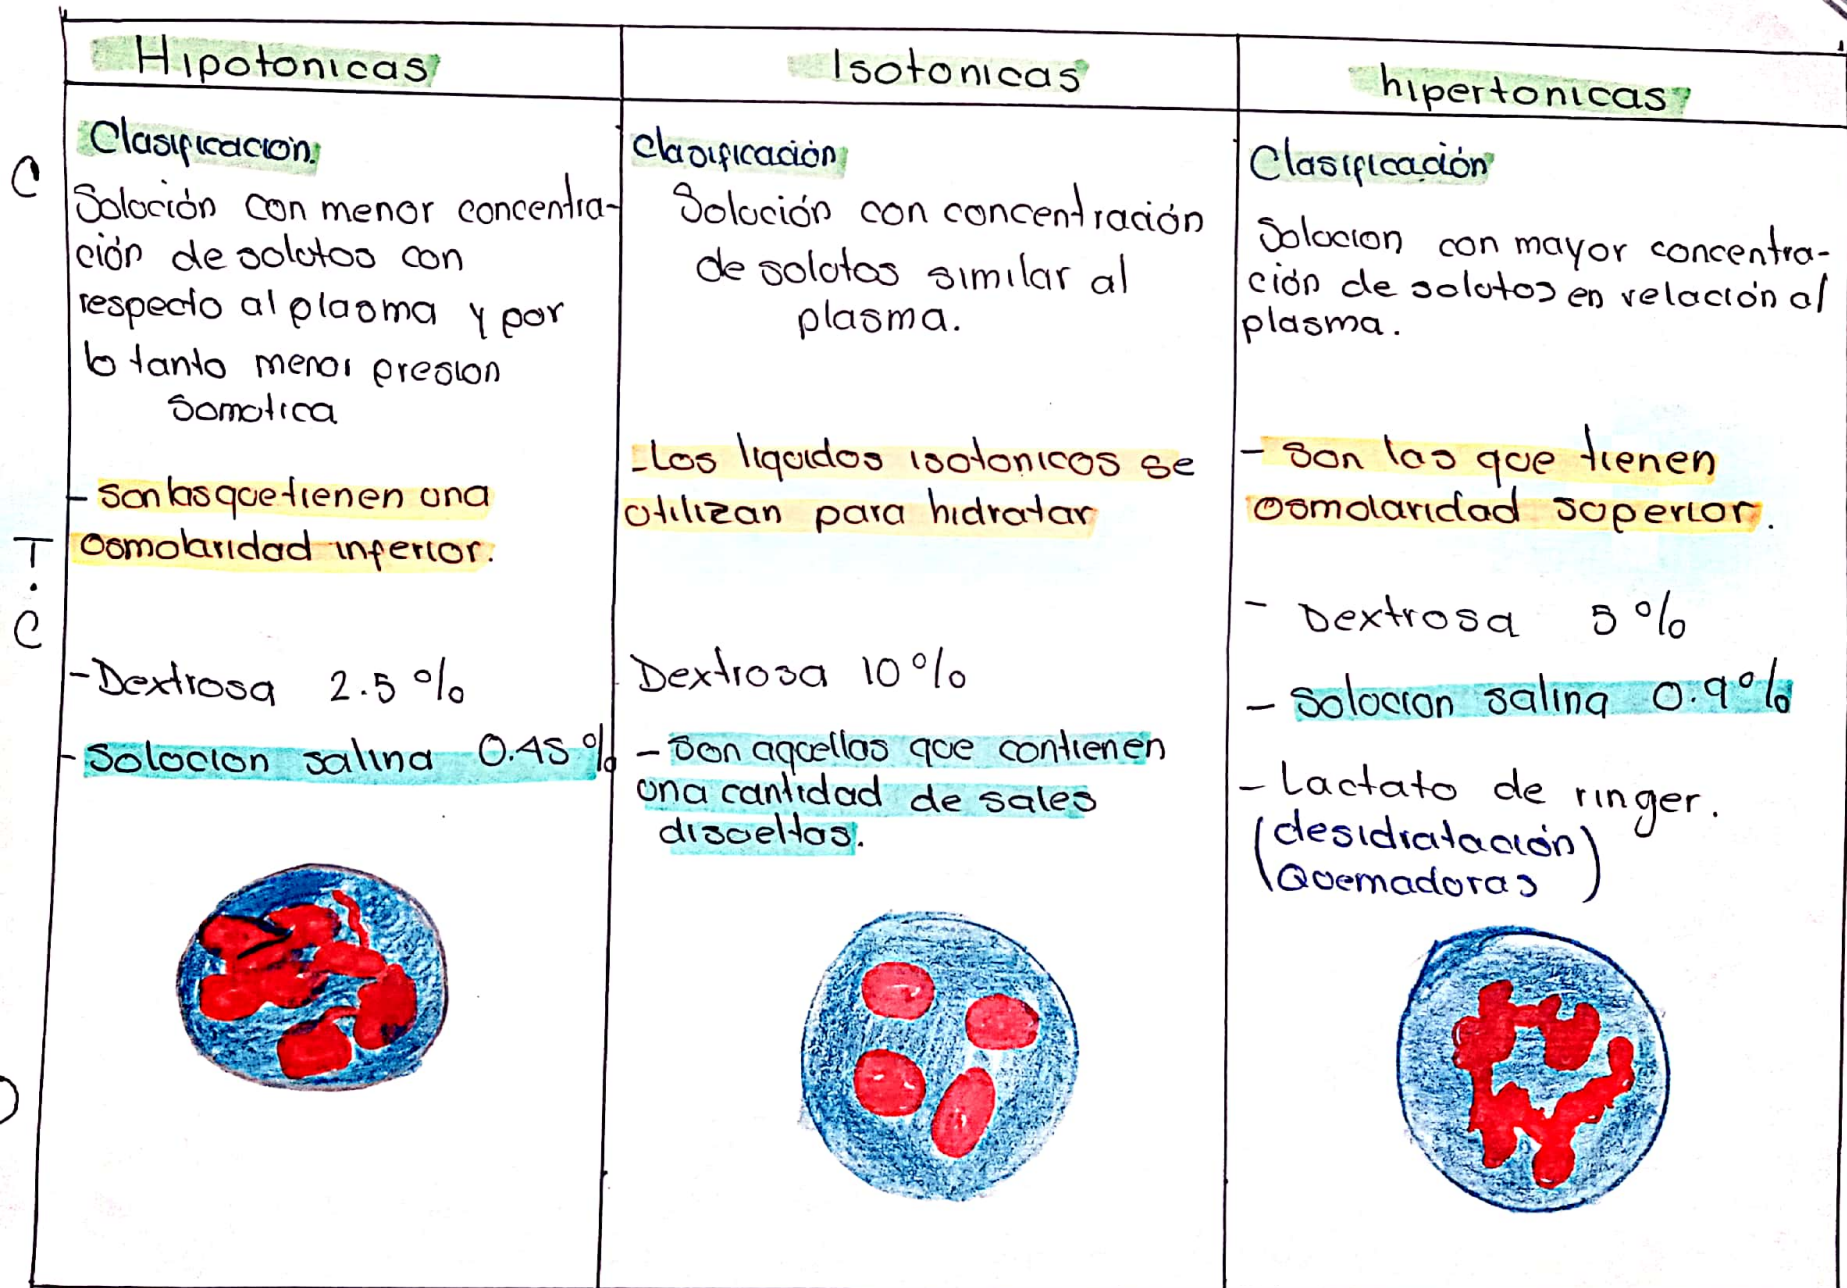 Hipotonicas
Clasificacion.
Solución con menor concentra-
ción de solutos con
respecto al plasma y por
lo tanto menor presion
Somotica
- son las que tienen una
osmolaridad inferior.
- Dextrosa 2.5 %
- Solucion salina 0.45 %
Isotonicas
Clasificación
Solución con concentración
de solutos similar al
plasma.
- Los liquidos isotonicos se
utilizan para hidratar
Dextrosa 10 %
- Son aquellas que contienen
una cantidad de sales
disueltas.
hipertonicas
Clasificación
Solucion con mayor concentra-
ción de solutos en relación al
plasma.
- Son las que tienen
osmolaridad superior.
- Dextrosa 5 %
- Solucion salina 0.9 %
- Lactato de ringer.
(desidratación
Quemaduras)
C
T.
C